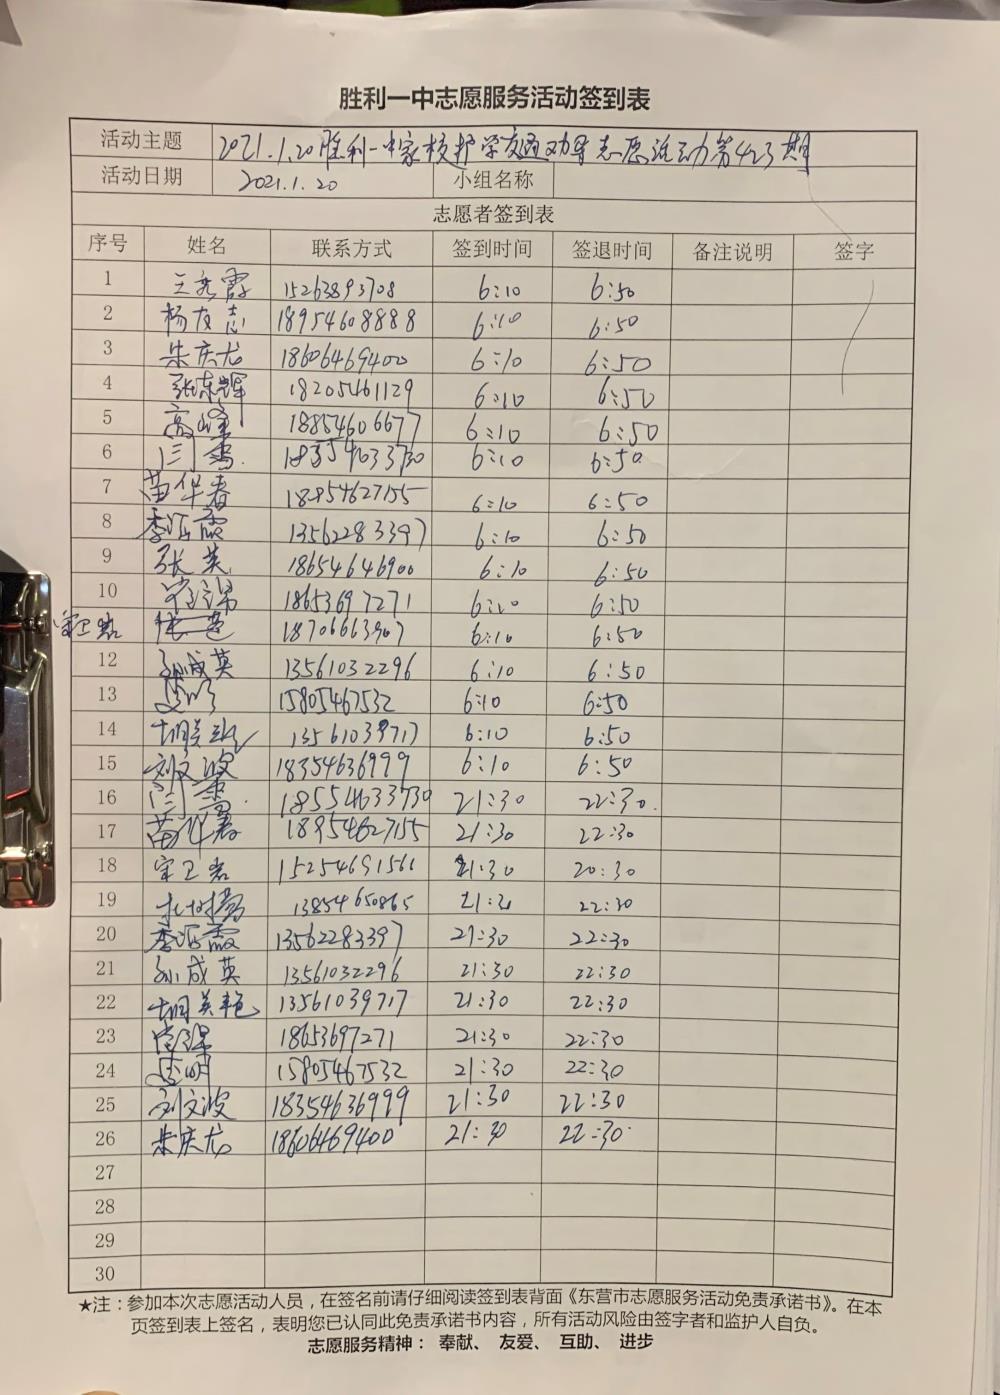 胜利一中志愿服务活动签到表
活动主题 2021.1.20胜利一中家校护学交通劝导志愿活动第423期
活动日期 2021.1.20 小组名称
志愿者签到表
序号 姓名 联系方式 签到时间 签退时间 备注说明 签字
1 王秀霞 15263893708 6:10 6:50
2 杨友志 18954608888 6:10 6:50
3 朱庆尤 18606469400 6:10 6:50
4 张东辉 18205461129 6:10 6:50
5 高峰 18854606677 6:10 6:50
6 闫 18554633730 6:10 6:50
7 苗华春 18954627155 6:10 6:50
8 季海霞 13562283397 6:10 6:50
9 张英 18654646900 6:10 6:50
10 18653697271 6:10 6:50
宋卫岩 18706663907 6:10 6:50
12 孙成英 13561032296 6:10 6:50
13 15805467532 6:10 6:50
14 胡美艳 13561039717 6:10 6:50
15 刘文波 18354636999 6:10 6:50
16 闫 18554633730 21:30 22:30
17 苗华春 18954627155 21:30 22:30
18 宋卫岩 15254691561 21:30 20:30
19 13854650865 21:30 22:30
20 季海霞 13562283397 21:30 22:30
21 孙成英 13561032296 21:30 22:30
22 胡美艳 13561039717 21:30 22:30
23 18653697271 21:30 22:30
24 15805467532 21:30 22:30
25 刘文波 18354636999 21:30 22:30
26 朱庆尤 18606469400 21:30 22:30
27
28
29
30
★注：参加本次志愿活动人员，在签名前请仔细阅读签到表背面《东营市志愿服务活动免责承诺书》。在本
页签到表上签名，表明您已认同此免责承诺书内容，所有活动风险由签字者和监护人自负。
志愿服务精神： 奉献、 友爱、 互助、 进步